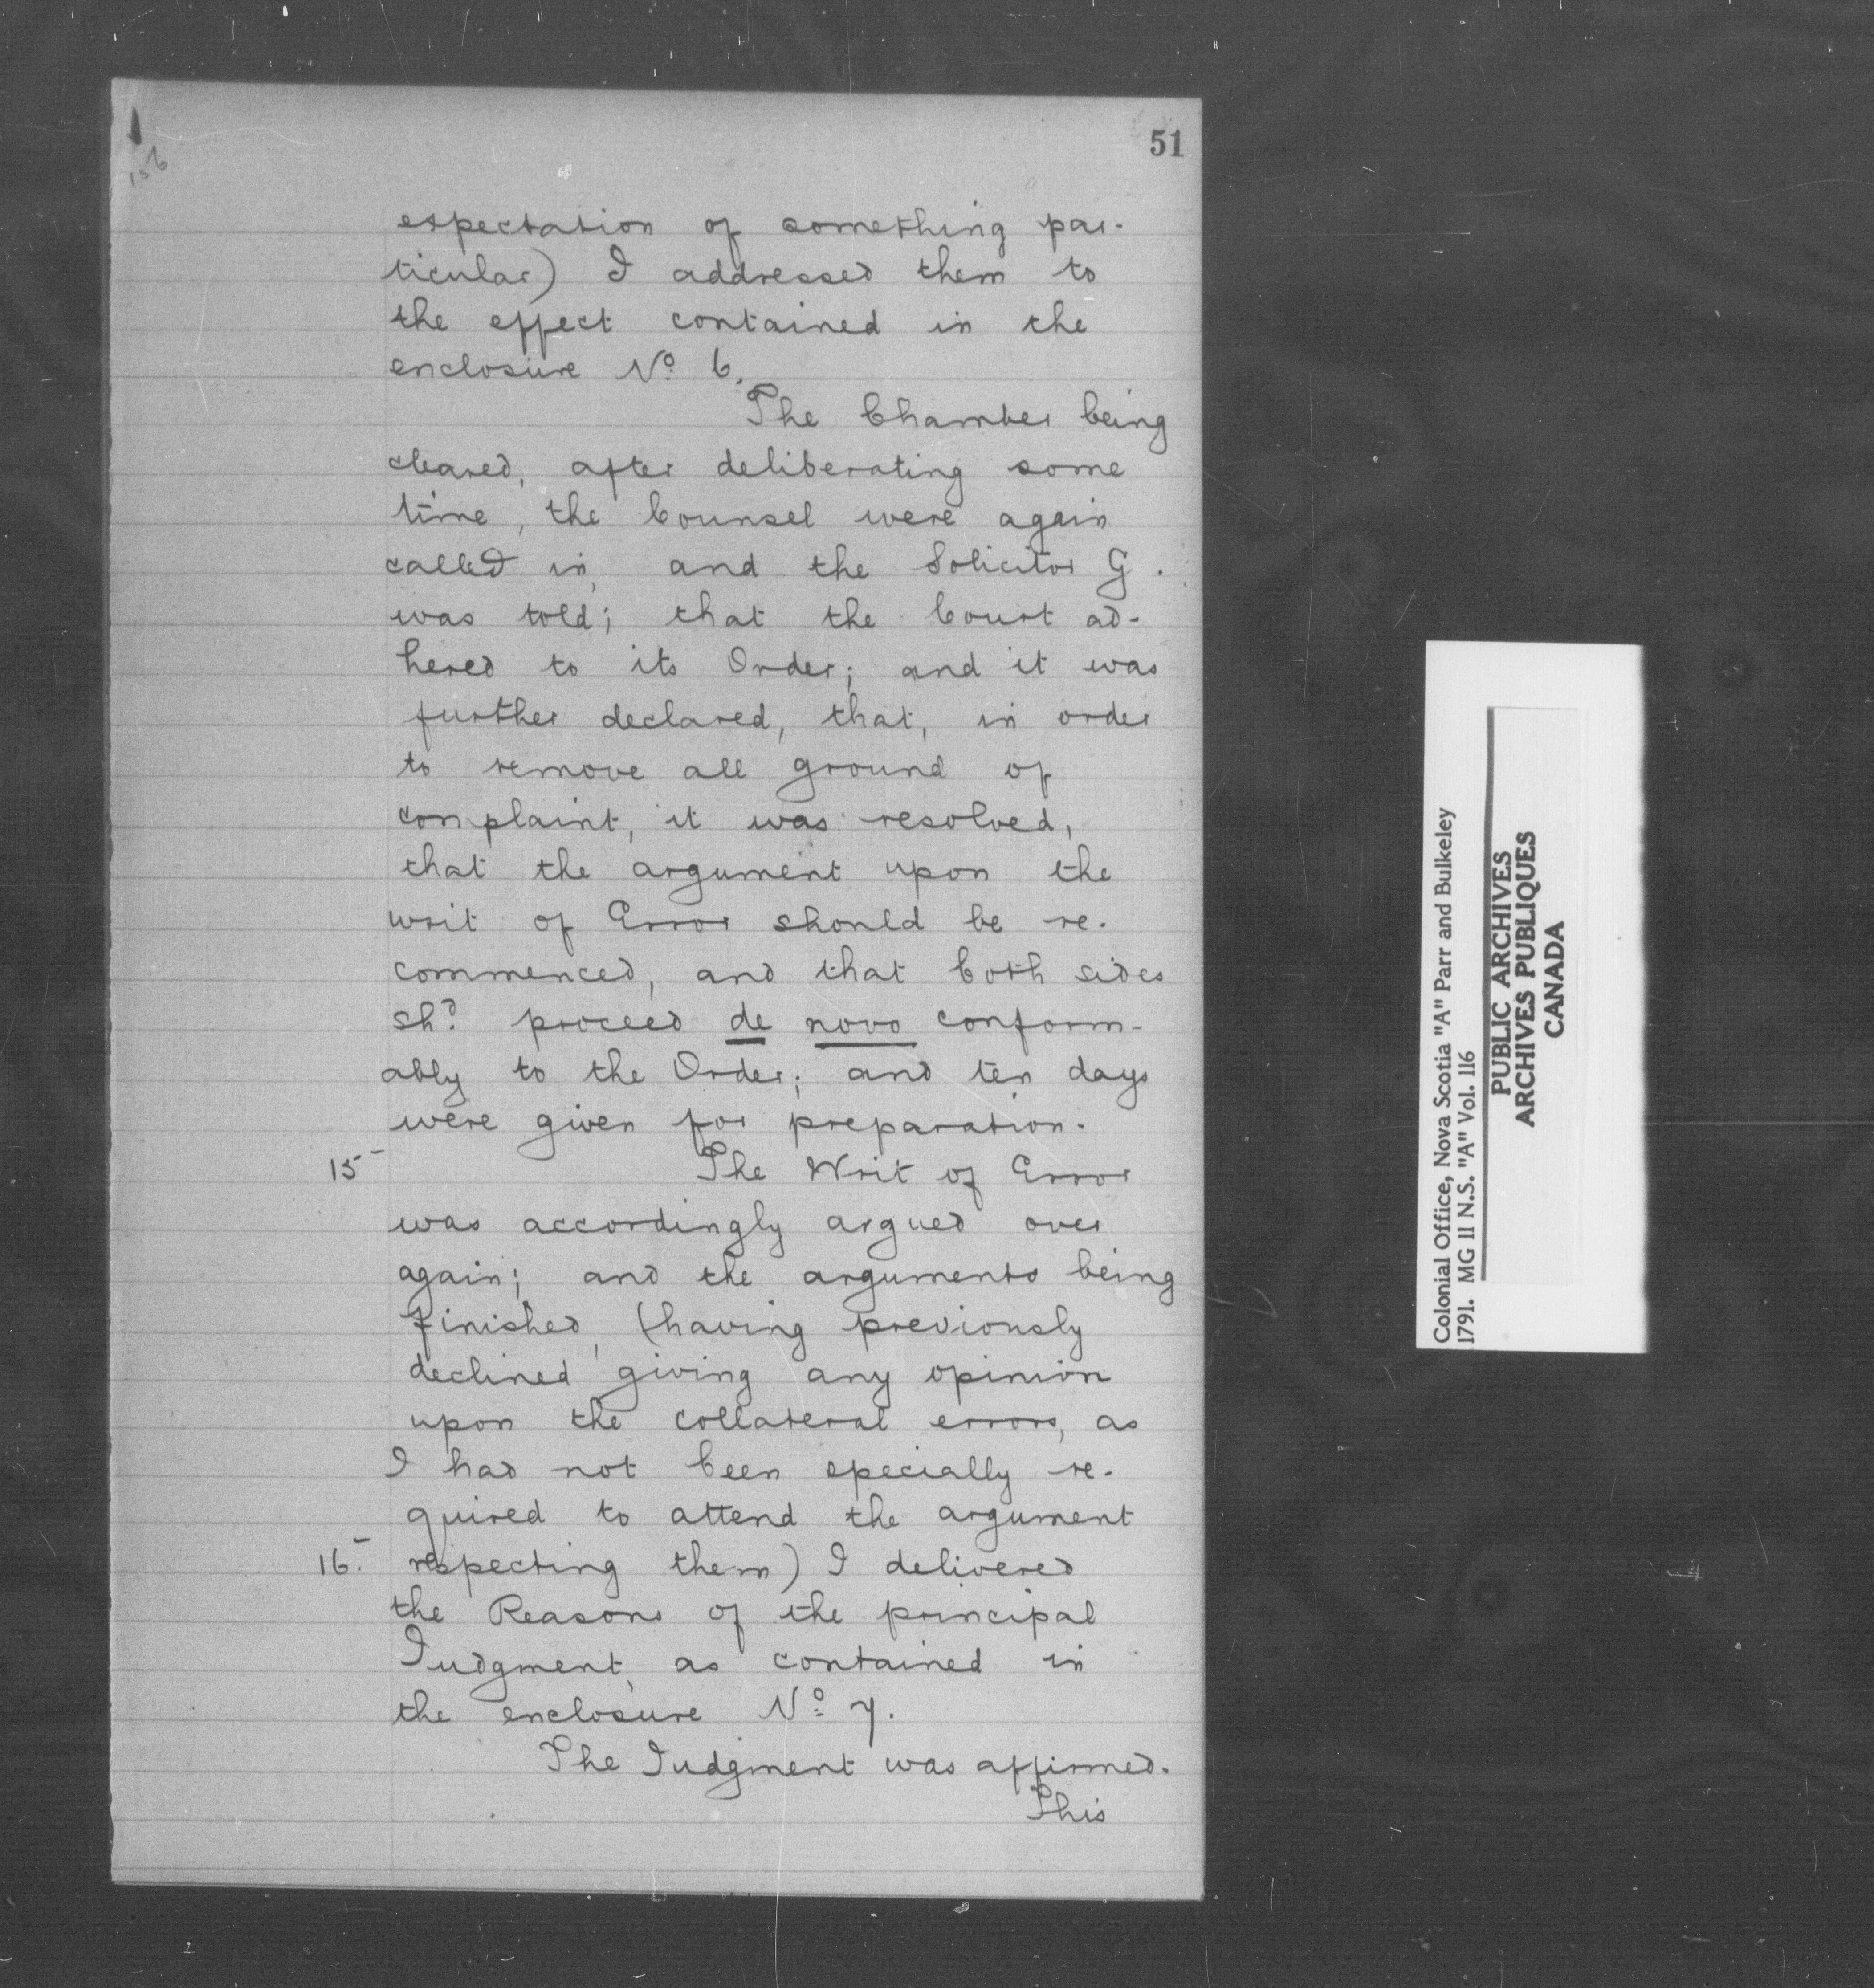 51
156
expectation of something par-
ticular) I addressed them to
the effect contained in the
enclosure Nº 6.
The Chamber being
cleared, after deliberating some
time, the Counsel were again
called in, and the Solicitor G.
was told; that the Court ad-
hered to its Order; and it was
further declared, that, in order
to remove all ground of
complaint, it was resolved,
that the argument upon the
writ of Error should be re-
commenced, and that both sides
shd proceed de novo conform-
ably to the Order; and ten days
were given for preparation.
15 The Writ of Error
was accordingly argued over
again; and the arguments being
finished, (having previously
declined giving any opinion
upon the collateral errors, as
I had not been specially re-
quired to attend the argument
16. respecting them) I delivered
the Reasons of the principal
Judgment, as contained in
the enclosure Nº 7.
The Judgment was affirmed.
This
Colonial Office, Nova Scotia "A" Parr and Bulkeley
1791. MG 11 N.S. "A" Vol. 116
PUBLIC ARCHIVES
ARCHIVES PUBLIQUES
CANADA